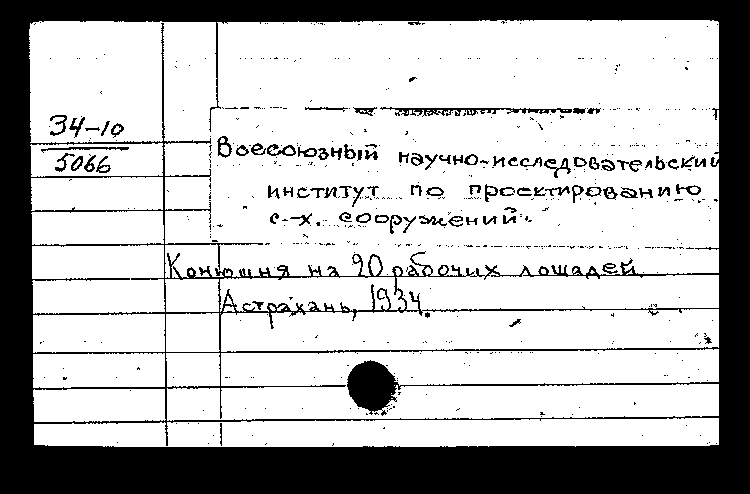 34-10
5066
Всесоюзный научно-исследовательский
институт по проектированию
с.-х. сооружений.
Конюшня на 20 рабочих лошадей.
Астрахань, 1934.